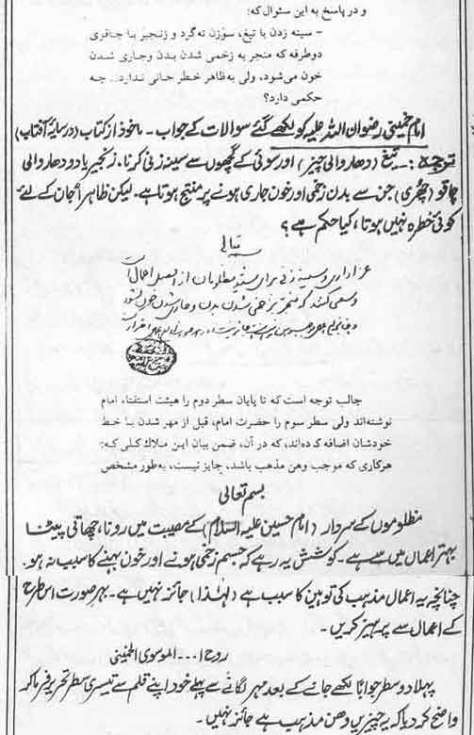 و در پاسخ به این سئوال که:
- سینه زدن با تیغ، سوزن ته‌گرد و زنجیر با چاقری
دوطرفه که منجر به زخمی شدن بدن و جاری شدن
خون می‌شود، ولی به‌ظاهر خطر جانی ندارد... چه
حکمی دارد؟
امام خمینی رضوان اللہ علیہ کو لکھے گئے سوالات کے جواب ۔ ماخوذ از کتاب (در سایۂ آفتاب)
توجہ:۔ تیغ (دھار والی چیز) اور سوئی کے گچھوں سے سینہ زنی کرنا، زنجیر یا دو دھار والی
چاقو (چھری) جن سے بدن زخمی اور خون جاری ہونے پر منتج ہوتا ہے۔ لیکن ظاہراً جان کے لئے
کوئی خطرہ نہیں ہوتا، کیا حکم ہے؟
عزاداری و سینه زنی برای سید مظلومان از افضل اعمال است
و سعی کنند که منجر به زخمی شدن بدن و جاری شدن خون نشود
جالب توجه است که تا پایان سطر دوم را هیئت استفتاء، امام
نوشته‌اند ولی سطر سوم را حضرت امام، قبل از مهر شدن بـا خـط
خودشان اضافه کرده‌اند، که در آن، ضمن بیان ایـن مـلاک کلـی کـه:
هرکاری که موجب وهن مذهب باشد، جایز نیست، به‌طور مشخص
بسم تعالی
مظلوموں کے سردار (امام حسین علیہ السلام) کے مصیبت میں رونا، چھاتی پیٹنا
بہتر اعمال میں سے ہے۔ کوشش یہ رہے کہ جسم زخمی ہونے اور خون بہنے کا سبب نہ ہو۔
چنانچہ یہ اعمال مذہب کی توہین کا سبب ہے (لہٰذا) جائز نہیں ہے۔ بہرصورت اس طرح
کے اعمال سے پرہیز کریں۔
روح ا... الموسوی الخمینی
پہلا دو سطر جواباً لکھے جانے کے بعد مہر لگانے سے پہلے خود اپنے قلم سے تیسری سطر تحریر فرما کر
واضح کر دیا کہ یہ چیزیں وھن مذہب ہے جائز نہیں۔